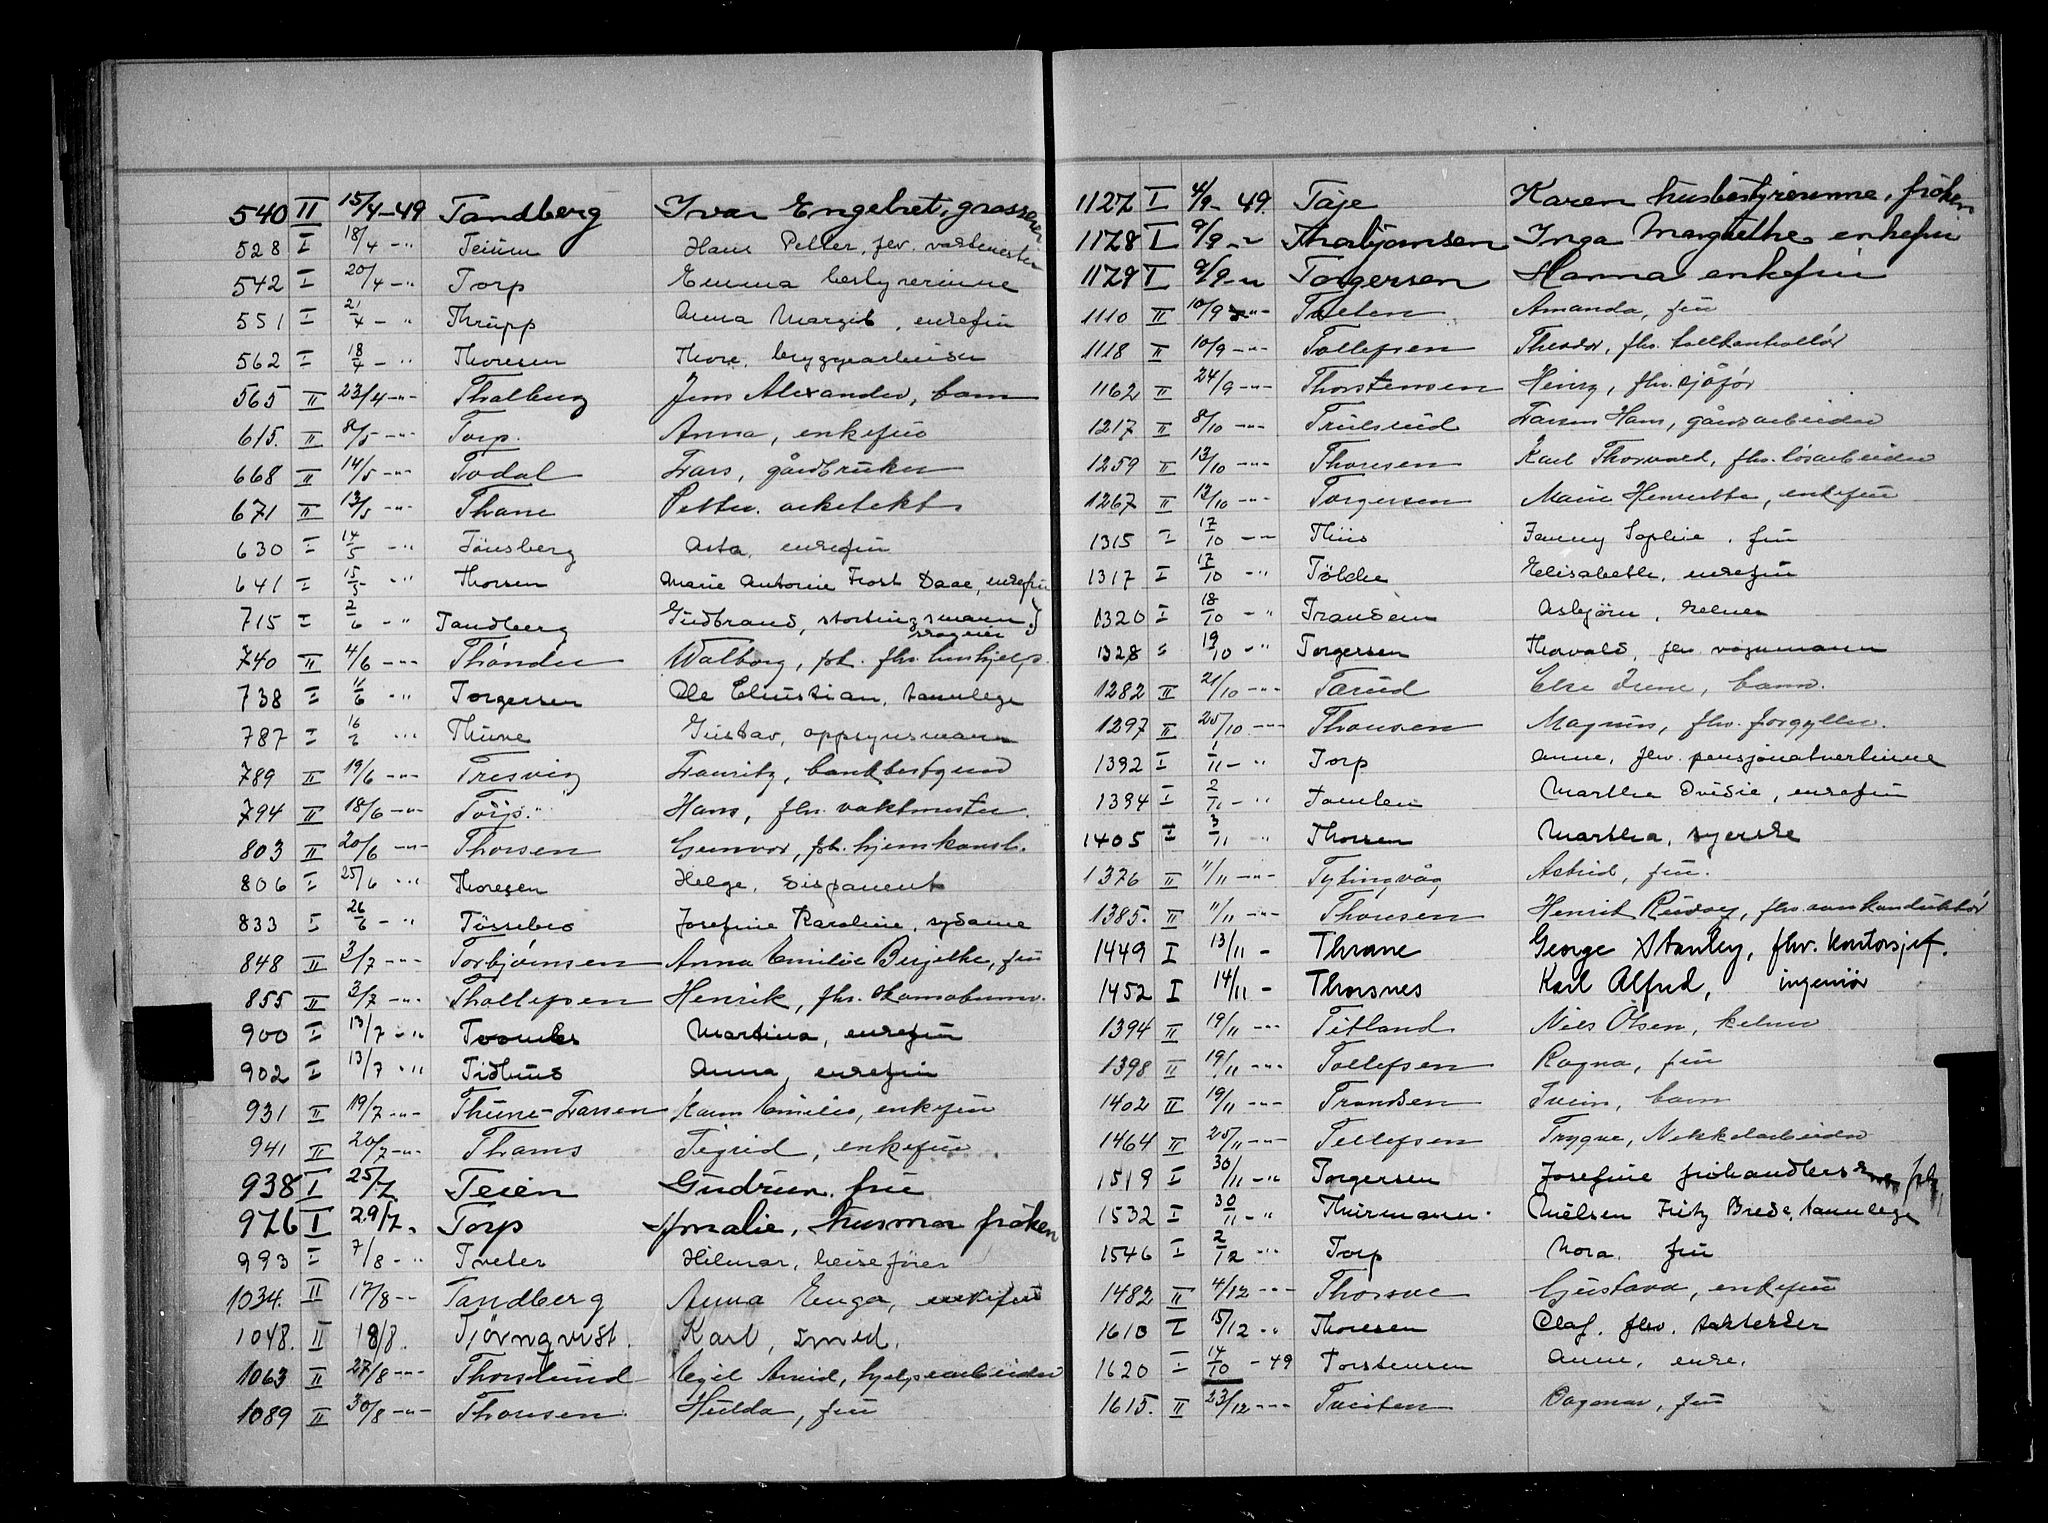 540 II 15/4-49 Tandberg Ivar Engebret, grosserer
528 I 18/4 -" Teium Hans Petter, fhv. vaktmester
542 I 20/4 -" Torp Emma bestyrerinne
551 I 21/4 - " Thrupp Anna Margit, enkefru
562 I 18/4 - " Thoresen Thore, bryggearbeider
565 II 23/4 -"- Thalberg Jens Alexander, barn
615. II 8/5 -"- Torp. Anna, enkefru
668 II 14/5 -"- Todal Lars, gårdbruker
671 II 13/5 -"- Thane Petter. arkitekt
630 I 14/5 -" Tønsberg Asta, enkefru
641 I 15/5 -" Thorsen Marie Antonie Frost Daae, enkefru
715 I 2/6 -" Tandberg Gudbrand, stortingsmann
740 II 4/6 -"- Walborg, frk. fhv. hushjelp.
738 I 11/6 -" Torgersen Ole Christian, tannlege
787 I 16/6 -" Thune Gustav, oppsynsmann
789 II 19/6 -"- Tresvig Lauritz, bankbestyrer
794 II 18/6 -"- Hans, fhv. vaktmester.
803 II 20/6 -"- Thorsen Gunvor, frk. hjemkonsl.
806 I 25/6 -" Thoresen Helge, disponent
833 I 26/6 -" Tøssebro Josefine Karoline, sydame
848 II 2/7 -"- Torbjørnsen Anna Emilie Birjethe, fru
855 II 3/7 -"- Thollefsen Henrik, fhv.
900 I 13/7 -" Martina, enkefru
902 I 13/7 -" Tidhus Anna, enkefru
931 II 19/7 -"- Thune-Larsen Karen Emilie, enkefru
941 II 20/7 -"- Thams Sigrid, enkefru
938 I 25/7 Teien Gudrun. fru
976 I 29/7. Torp Amalie, husmor frøken
993 I 7/8 - " Tveter Hilmar, heisefører
1034. II 17/8 -" Tandberg Anna Enga, enkefru
1048. II 18/8. Tjörnqvist. Karl, smed.
1063 II 27/8 -"- Thorslund Egil Arvid, hjelpearbeider
1089 II 30/8 -"- Thorsen. Hulda, fru
1127 I 4/9- 49. Taje Karen husbestyrerinne, frøken
1128 I 9/9 -" Thorbjørnsen Inga Margrethe enkefru
1129 I 9/9 -" Torgersen Hanna enkefru
1110 II 10/9 -"- Tveten Amanda, fru
1118 II 10/9 -"- Tollefsen Theodor, fhv. tollkontrollør
1162 II 24/9 -"- Thorstensen Henry, fhv. sjåfør
1217 II 8/10 -"- Trulsrud Larsen Hans, gårdsarbeider
1259 II 13/10 -"- Thoresen Karl Thorvald, fhv. løsarbeider
1267 II 13/10 -"- Torgersen Marie Henriette, enkefru
1315 I 17/10 -" Thiis Fanny Sophie, fru
1317 I 17/10 -" Elisabeth, enkefru
1320 I 18/10 -" Trandem Asbjørn, kelner
1328 " 19/10 -" Torgersen Thorvald, fhv. vognmann
1282 II 21/10 -"- Tarud Else Irene, barn.
1297 II 25/10 -"- Thorsen Magnus, fhv. forgyller.
1392 I 1/11 -" Torp Anne, fhv. pensjonatvertinne
1394 I 2/11 - " Tomten Martha Ovidie, enkefru
1405 I 3/11 " Thorsen Martha, syerske
1376 II 11/11 -"- Tytingvåg Astrid, fru.
1385. II 11/11 -"- Thorsen Henrik Rudolf, fhv. overkonduktør
1449 I 13/11 - Thrane George Stanley, fhv. kontorsjef.
1452 I 14/11 - Thorsnes Karl Alfred, ingeniør
1394 II 19/11 -"- Titland Nils Olsen, kelner
1398 II 19/11 -"- Tollefsen Ragna, fru
1402 II 19/11 -"- Trondsen Svein, barn
1464 II 25/11 -"- Tellefsen Trygve, Nikkelarbeider
1519 I 30/11 -" Torgersen Josefine
1532 I 30/11 -" Thurmann. Nielsen Fritz Brede, tannlege
1546 I 2/12 -" Torp Nora. fru
1482 II 4/12 -"- Gustava, enkefru
1610 I 15/12 -" Thoresen Olaf. fhv. taktekker
1620 I 14/10 - 49 Torstensen Anne, enke.
1615. II 23/12 -"- Tveiten Dagmar, fru